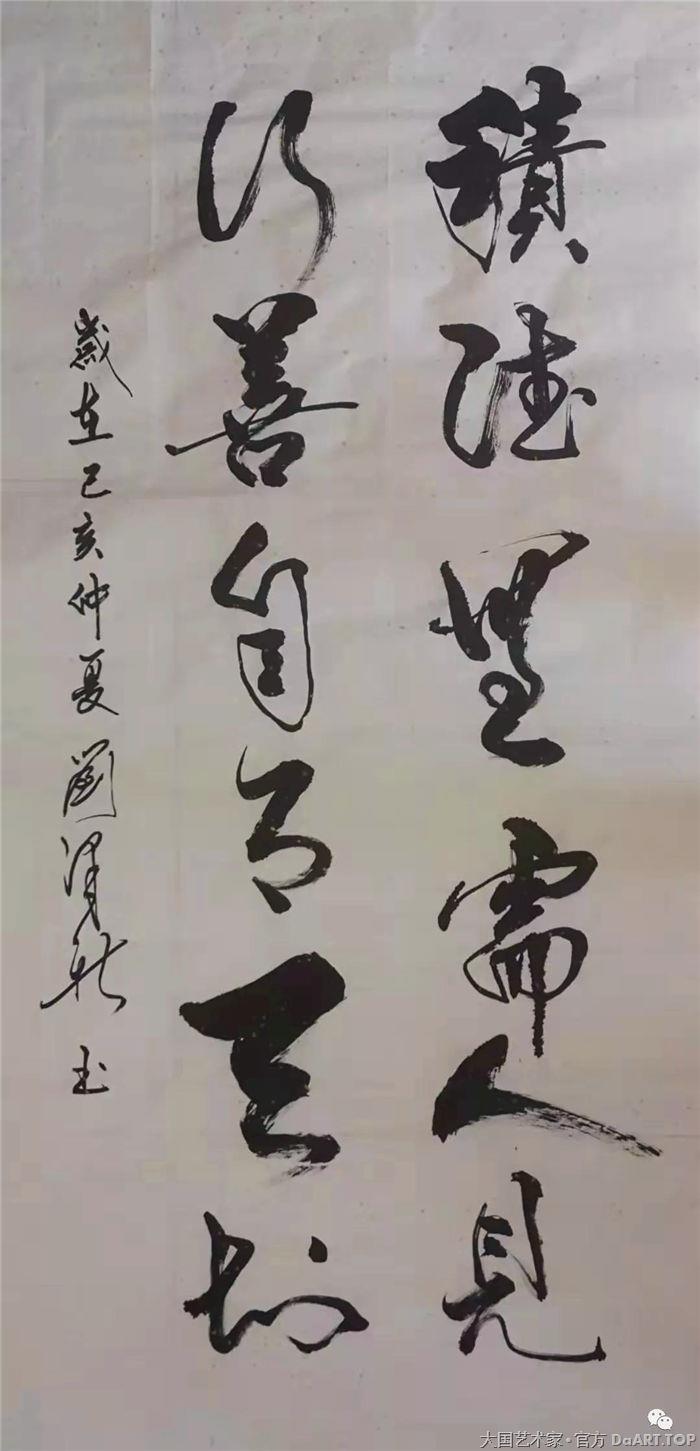 積德無需人見
行善自有天知
歲在己亥仲夏劉书
大国艺术家·官方 DaART.TOP